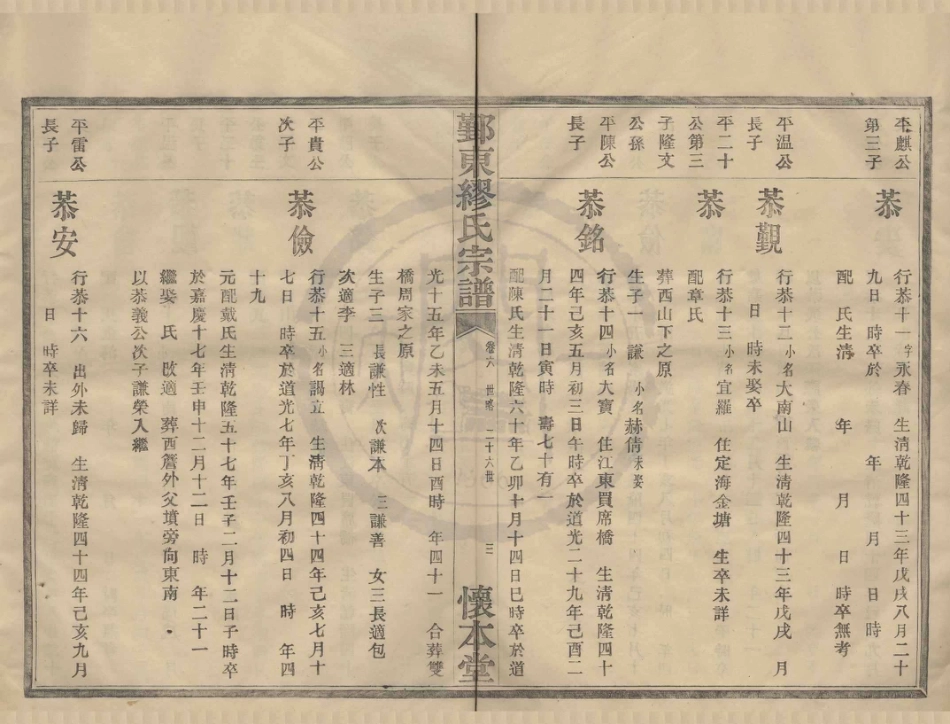 平麒公
第三子
恭
行恭十一字永春　生清乾隆四十三年戊戌八月二十
九日　時卒於　年　月　日　時
配　氏生清　年　月　日　時卒無考
平溫公
長子
恭觀
行恭十二小名大南山　生清乾隆四十三年戊戌　月
日　時未娶卒
平二十
公第三
子隆文
公孫
恭
行恭十三小名宜羅　住定海金塘　生卒未詳
配章氏
葬西山下之原
生子一　謙　小名赫倩未娶
平陳公
長子
恭銘
行恭十四小名大寶　住江東買席橋　生清乾隆四十
四年己亥五月初三日午時卒於道光二十九年己酉二
月二十一日寅時　壽七十有一
配陳氏生清乾隆六十年乙卯十月十四日巳時卒於道
鄞東繆氏宗譜
卷六　世略　二十六世　三
懷本堂
光十五年乙未五月十四日酉時　年四十一　合葬雙
橋周家之原
生子三　長謙性　次謙本　三謙善　女三長適包
次適李　三適林
平貴公
次子
恭儉
行恭十五小名謁立　生清乾隆四十四年己亥七月十
七日　時卒於道光七年丁亥八月初四日　時　年四
十九
元配戴氏生清乾隆五十七年壬子二月十二日子時卒
於嘉慶十七年壬申十二月十二日　時　年二十一
繼娶　氏　改適　葬西詹外父墳旁向東南
以恭義公次子謙榮入繼
平雷公
長子
恭安
行恭十六　出外未歸　生清乾隆四十四年己亥九月
日　時卒未詳